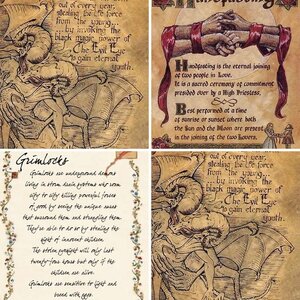 out of every year,
stealing the life force
from the young...
...by invoking the
black magic power of
The Evil Eye
to gain eternal
youth.
Handfasting
Handfasting is the eternal joining
of two people in Love.
It is a sacred ceremony of commitment
presided over by a High Priestess.
Best performed at a time
of sunrise or sunset where both
the Sun and the Moon are present
in the joining of the two Lovers.
Grimlocks
Grimlocks are underground demons
living in storm drain systems who roam
city to city killing powerful forces
of good by seeing the unique auras
that surround them and strangling them.
They're able to do so by stealing the
sight of innocent children.
The stolen eyesight will only last
twenty-four hours but only if the
children are alive.
Grimlocks are sensitive to light and
out of every year,
stealing the life force
from the young...
...by invoking the
black magic power of
The Evil Eye
to gain eternal
youth.